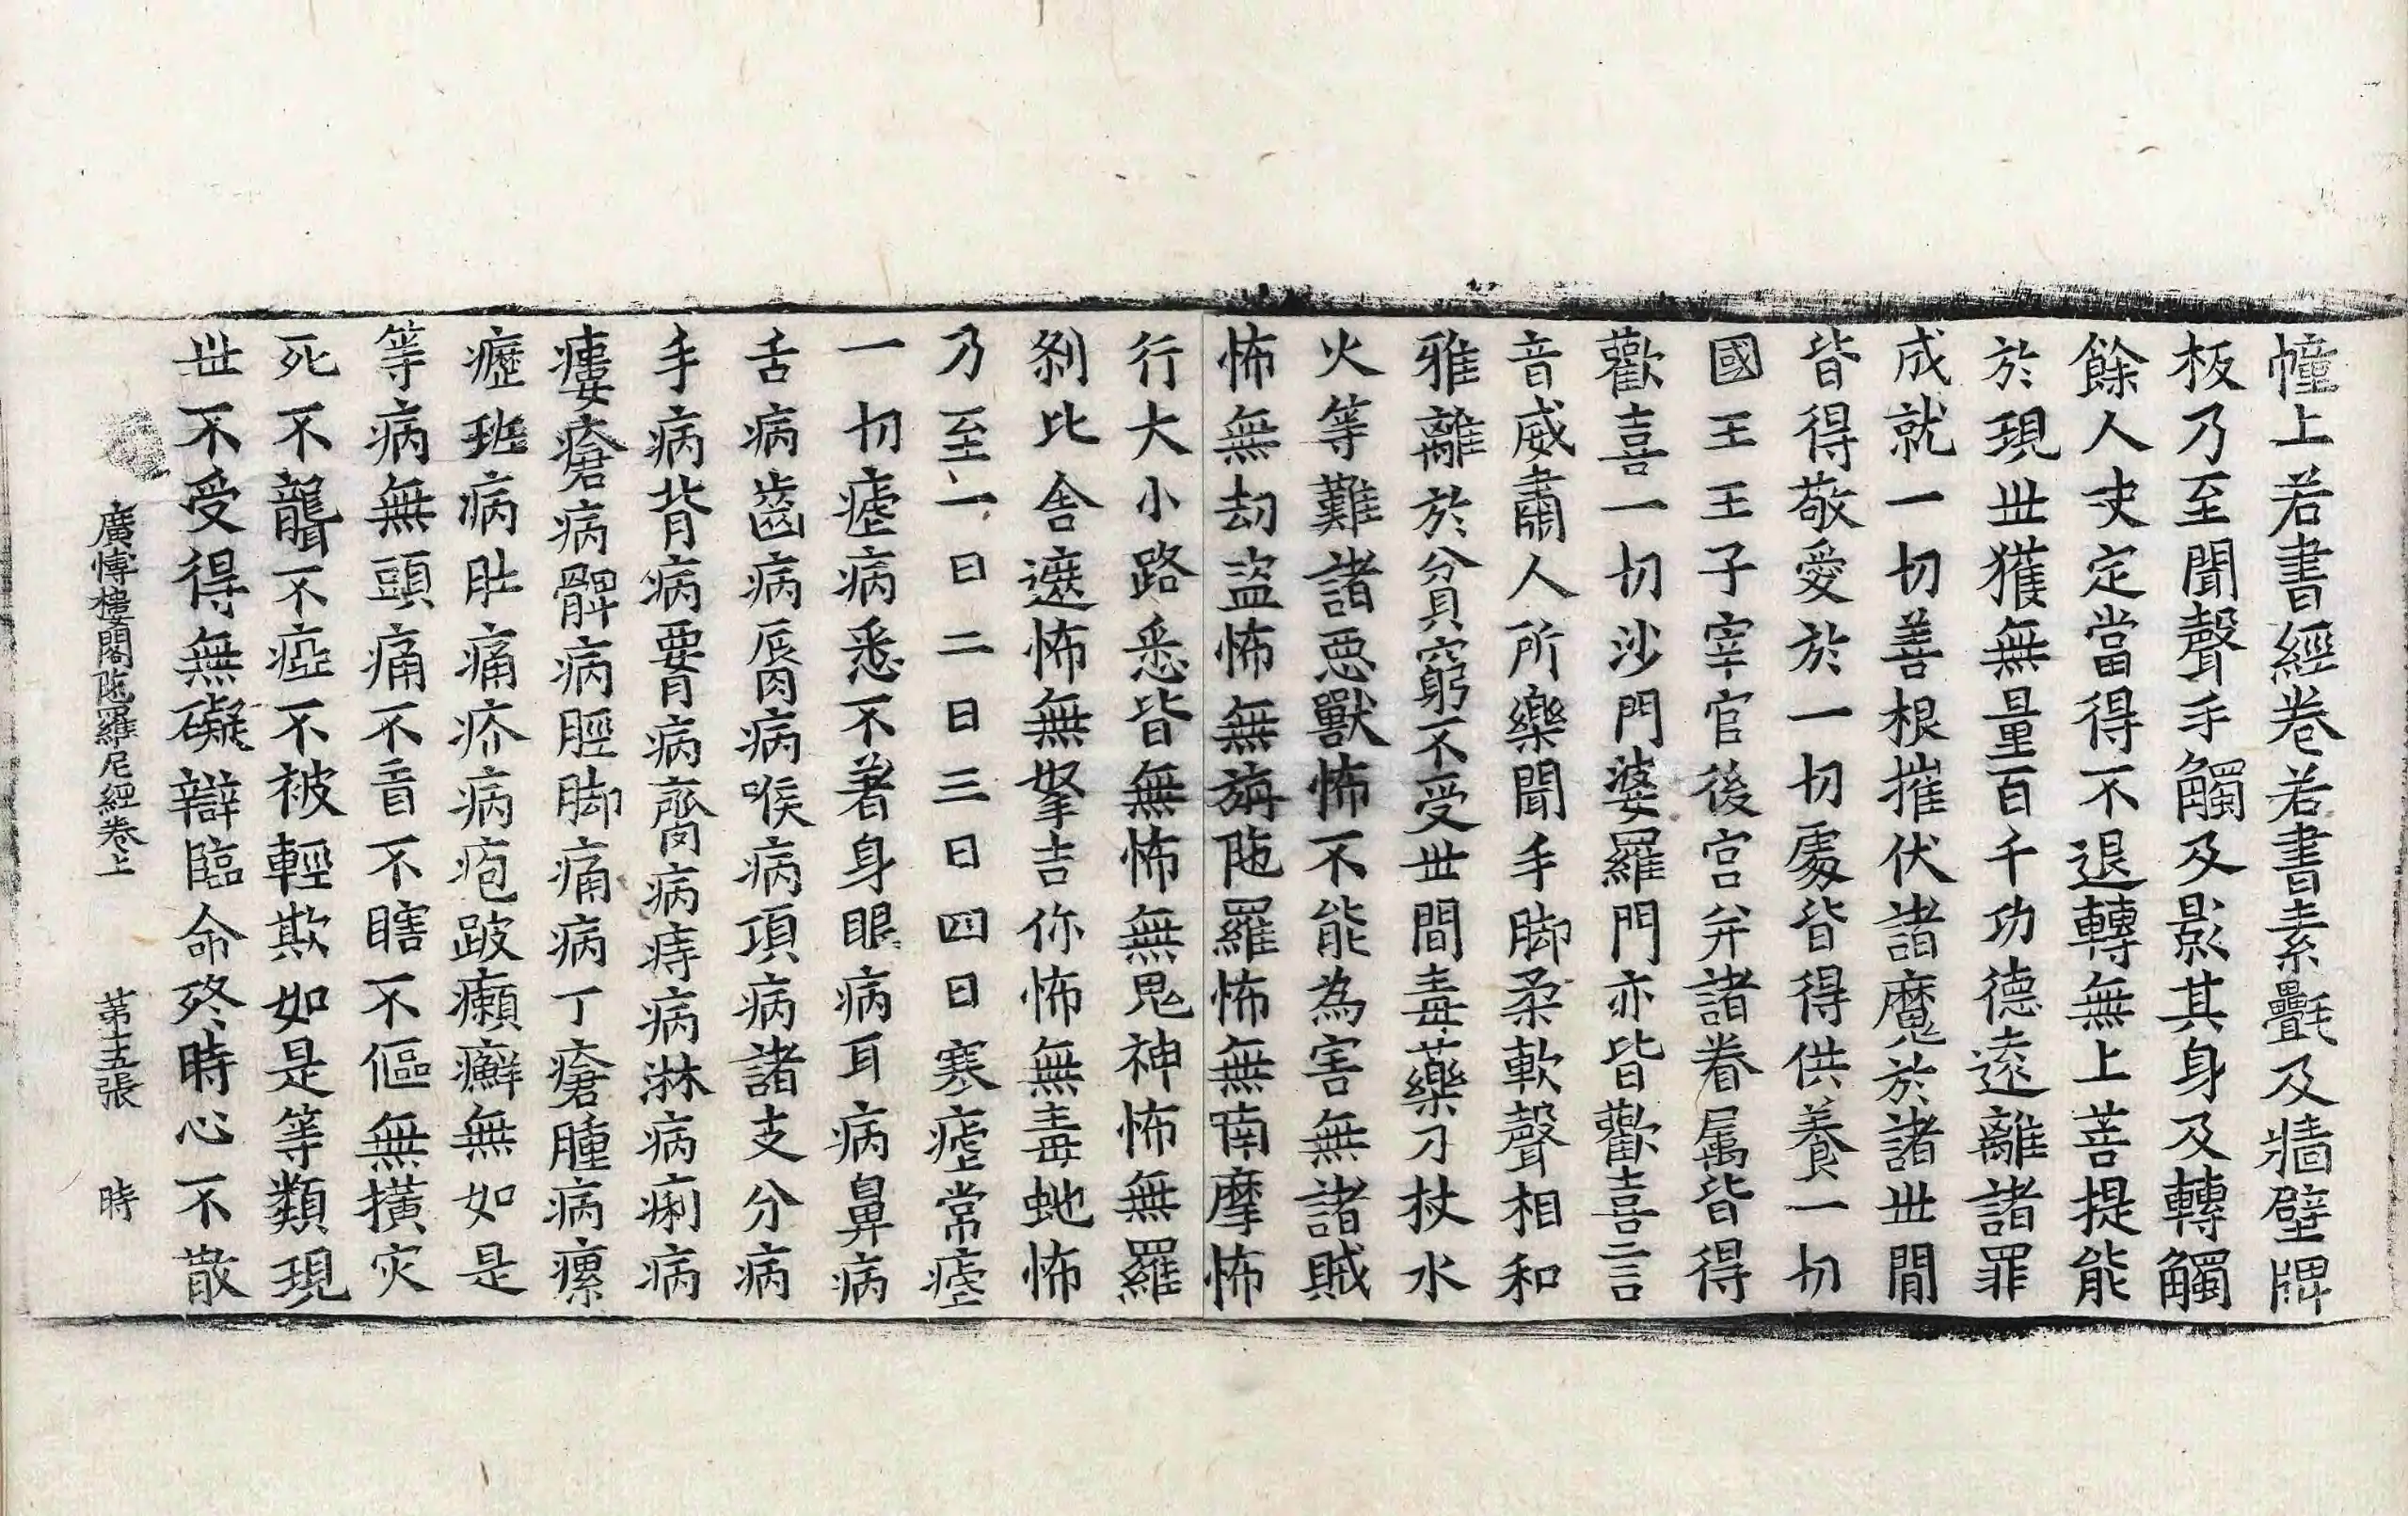 幢上若書經卷若書素㲲及牆壁牌
板乃至聞聲手觸及影其身及轉觸
餘人决定當得不退轉無上菩提能
於現世獲無量百千功德遠離諸罪
成就一切善根摧伏諸魔於諸世間
皆得敬愛於一切處皆得供養一切
國王王子宰官後宮并諸眷属皆得
歡喜一切沙門婆羅門亦皆歡喜言
音威肅人所樂聞手脚柔軟聲相和
雅離於貧窮不受世間毒藥刀杖水
火等難諸惡獸怖不能為害無諸賊
怖無劫盜怖無旃陁羅怖無南摩怖
行大小路悉皆無怖無鬼神怖無羅
剎比舍遮怖無拏吉你怖無毒虵怖
乃至一日二日三日四日寒瘧常瘧
一切瘧病悉不著身眼病耳病鼻病
舌病齒病脣病喉病項病諸支分病
手病背病腰病臍病痔病淋病痢病
瘻瘡病髀病脛脚痛病丁瘡腫病瘰
癧班病肚痛疥病疱跛癩癬無如是
等病無頭痛不盲不瞎不傴無橫灾
死不聾不瘂不被輕欺如是等類現
世不受得無礙辯臨命終時心不散
廣愽樓閣陁羅尼經卷上 第十五張 時